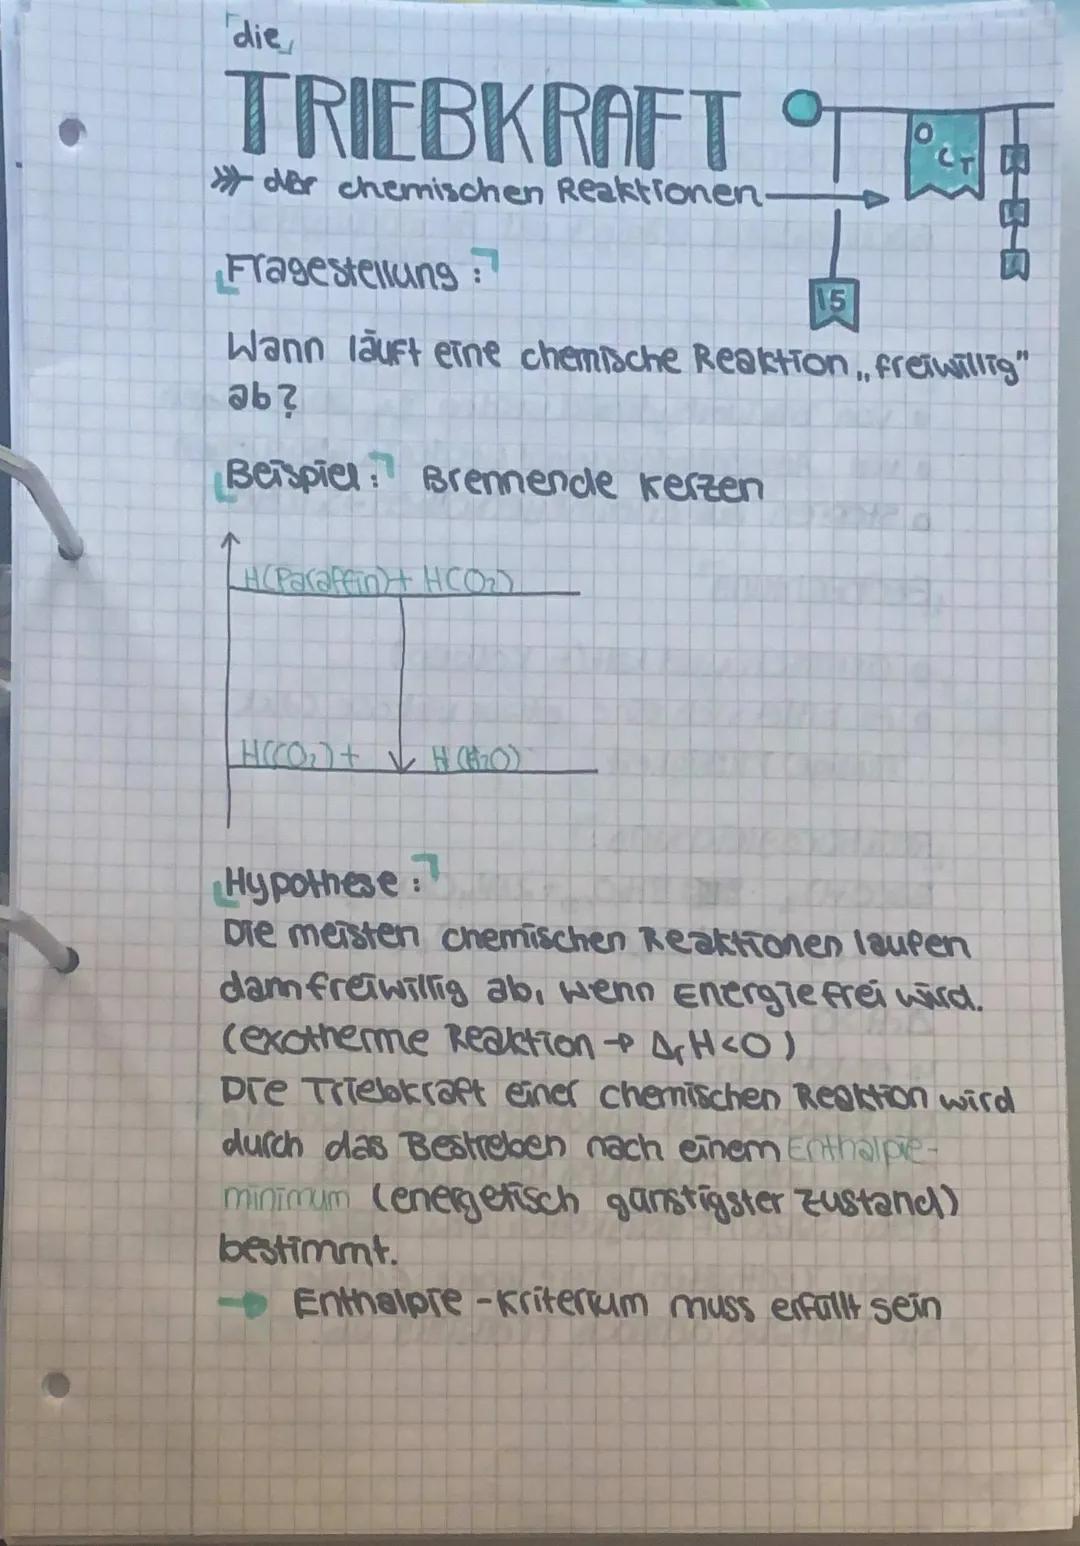 die
TRIEBKRAFT
der chemischen Reaktionen
OCT
15
Fragestellung:
Wann läuft eine chemische Reaktion „freiwillig"
ab?
Beispiel: Brennende Kerzen
H(Paraffin) + H(O₂)
H(CO₂) + H(H₂O)
Hypothese:
Die meisten chemischen Reaktionen laufen
dann freiwillig ab, wenn Energie frei wird.
(exotherme Reaktion → ΔrH<0)
Die Triebkraft einer chemischen Reaktion wird
durch das Bestreben nach einem Enthalpie-
minimum (energetisch günstigster Zustand)
bestimmt.
→ Enthalpie-Kriterium muss erfüllt sein